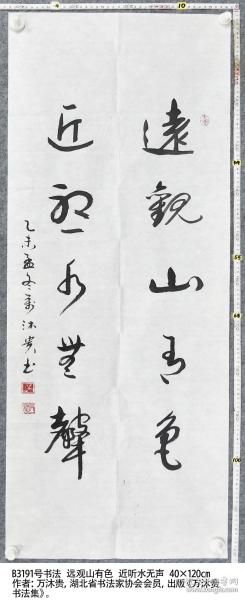 遠觀山有色
近聽水無聲
乙未孟冬萬沐贵书
B3191号书法 远观山有色 近听水无声 40×120cm
作者：万沐贵，湖北省书法家协会会员，出版《万沐贵
书法集》。